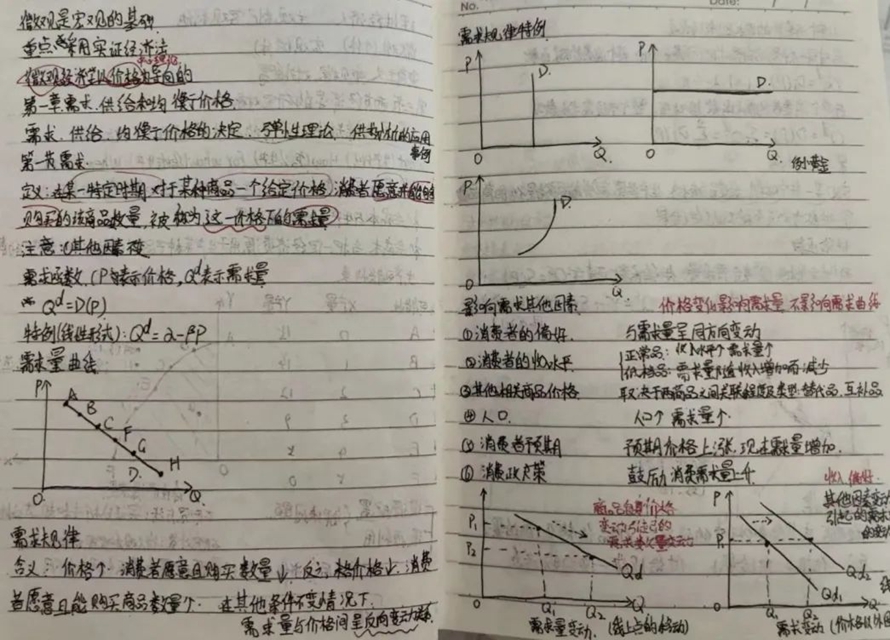 微观是宏观的基础.
重点采用实证经济法
中心理论
微观经济学以价格为导向的
第一章需求.供给和均衡价格.
需求.供给.均衡价格的决定.弹性理论.供求价的应用
案例
第一节需求
定义:在某一特定时期.对于某种商品一个给定价格,消费者愿意并能够
购买的该商品数量,被称为这一价格下的需求量)
注意:(其他因素不变
需求函数.(P为表示价格,Qd表示需求量
Qd=D(P)
特例(线性形式):Qd=α-βP
需求量曲线
P
A
B
C
F
G
D
H
O
Q
需求规律
含义:价格个.消费者愿意且购买数量↓.反之,格价格↓.消费
者愿意且能购买商品数量个. 在其他条件不变情况下.
需求量与价格间呈反向变动关系.
No.
Date:
需求规律特例.
P
D.
O
Q.
P
D.
O
Q.
P
D.
O
Q.
影响需求其他因素. 价格变化影响需求量 不影响需求曲线
①消费者的偏好. 与需求量呈同方向变动
②消费者的收水平. 正常品:收入水平个需求量个
低档品:需求量随收入增加而减少
③其他相关商品价格 取决于两商品之间关联程度及类型:替代品,互补品
④人口. 人口个 需求量个.
⑤消费者预期 预期价格上涨.现在需求量增加.
⑥消费政策 鼓励消费需求量上个
P
P1
P2
O
Q1
Q2
Q
Qd
商品自身价格
变动引起的
需求数量变动
需求量变动.(线上点的移动)
收入 偏好
其他因素变动
引起的需求
P
P.
O
Q1
Q2
Q
Qd1
Qd2
需求变动